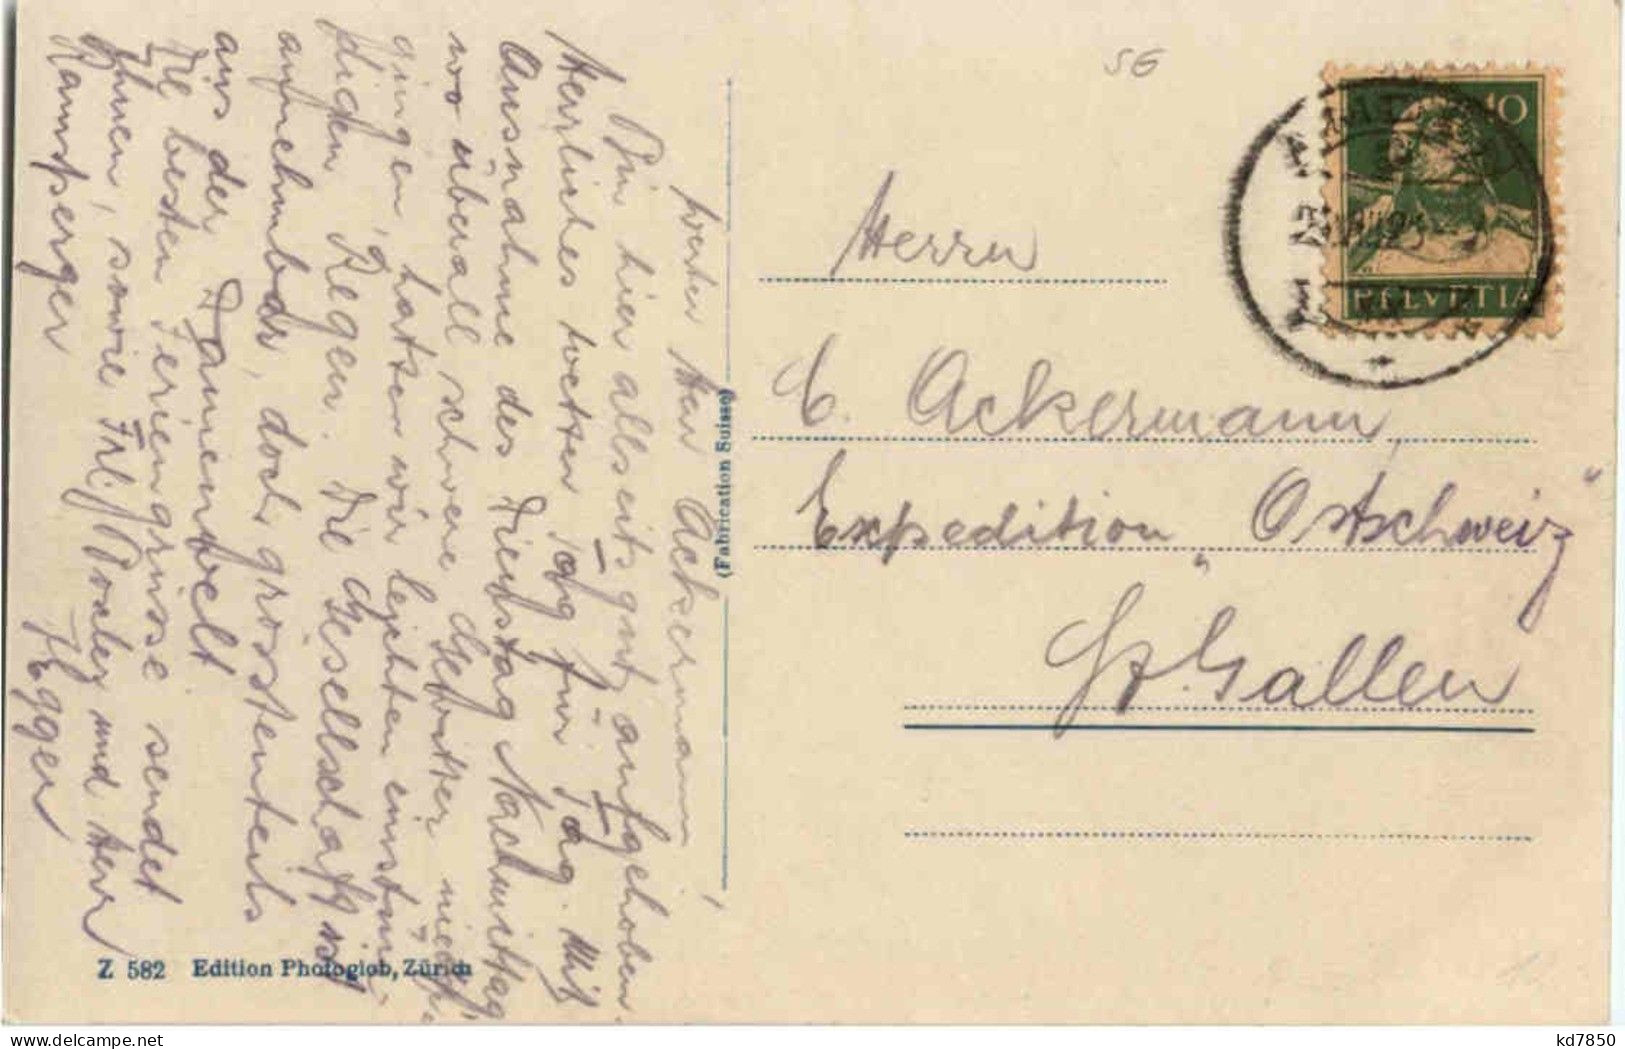 Werter Herr Ackermann,
Bin hier allseits gut aufgehoben.
Herrliches Wetter Tag für Tag. Mit
Ausnahme des Dienstag Nachmittag
wo überall schwere Gewitter nieder-
gingen, hatten wir leichten einstün-
digen Regen. Die Gesellschaft ist
annehmbar, doch grösstenteils
aus der Damenwelt
Die besten Feriengrüsse sendet
Ihnen, sowie Frl. und Herr
Ramsperger
H. Egger
Z 582 Edition Photoglob, Zürich
(Fabrication Suisse)
SG
10
HELVETIA
Herrn
E. Ackermann,
Expedition „Ostschweiz“
St. Gallen
kd7850